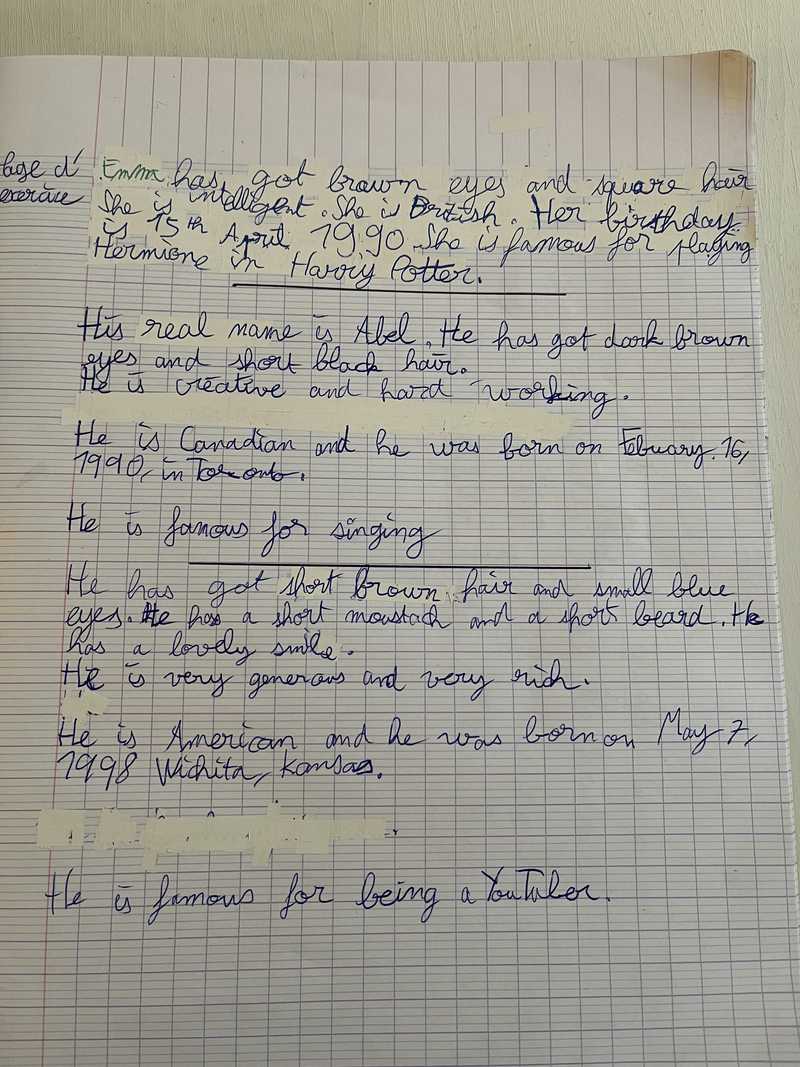 page d'
exercice
Emma has got brown eyes and square hair
She is intelligent. She is British. Her birthday
is 15th April 1990. She is famous for playing
Hermione in Harry Potter.
His real name is Abel. He has got dark brown
eyes and short black hair.
He is creative and hard working.
He is Canadian and he was born on Febuary. 16,
1990, in Toronto.
He is famous for singing
He has got short brown hair and small blue
eyes. He has a short moustach and a short beard. He
has a lovely smile.
He is very generous and very rich.
He is American and he was born on May 7,
1998 Wichita, Kansas.
He is famous for being a YouTuber.